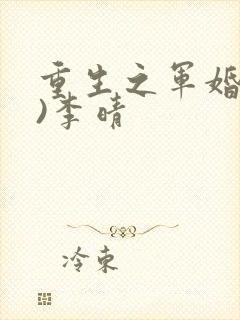 重生之军婚
)李晴
冷束